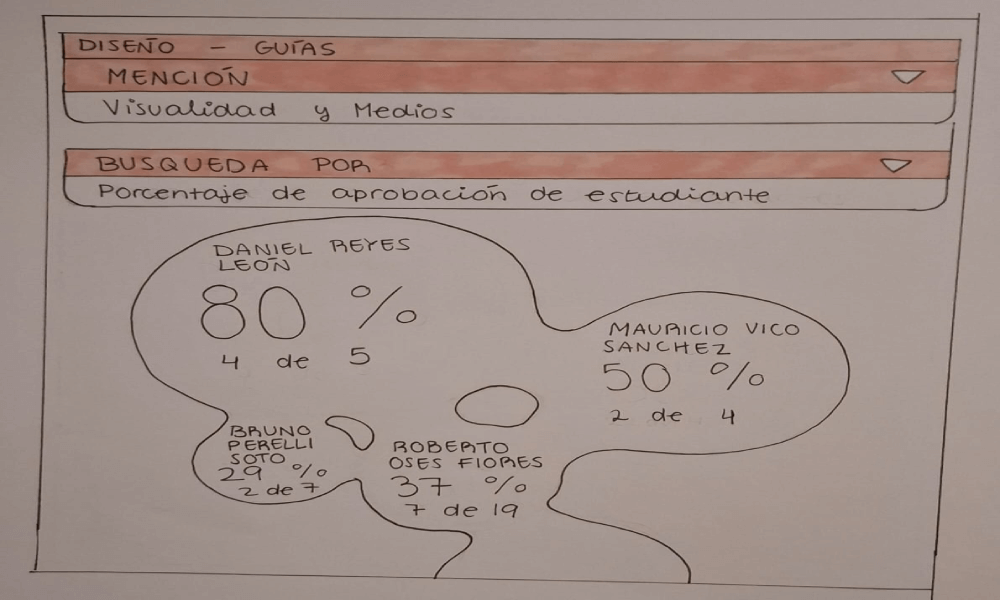 DISEÑO - GUÍAS
MENCIÓN
Visualidad y Medios
BUSQUEDA POR
Porcentaje de aprobación de estudiante
DANIEL REYES
LEÓN
80 %
4 de 5
MAURICIO VICO
SANCHEZ
50 %
2 de 4
BRUNO
PERELLI
SOTO
29 %
2 de 7
ROBERTO
OSES FIORES
37 %
7 de 19